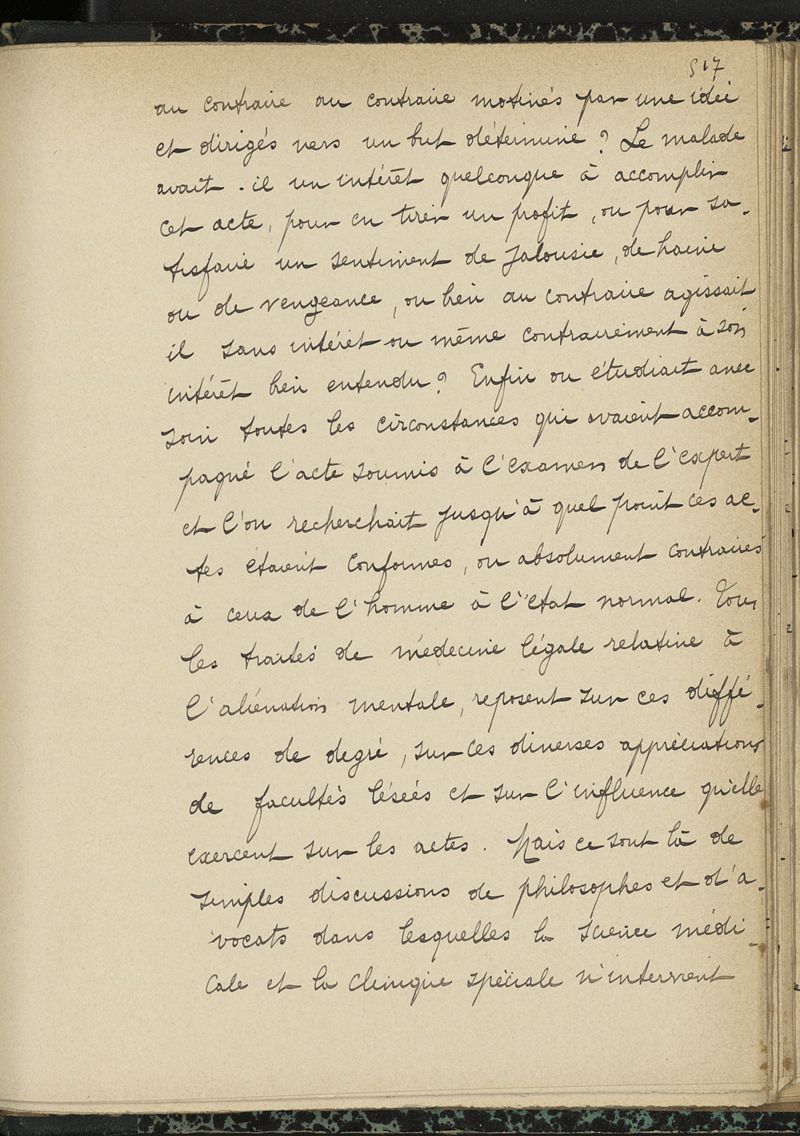 517
au contraire au contraire motivés par une idée
et dirigés vers un but déterminé ? Le malade
avait-il un intérêt quelconque à accomplir
cet acte, pour en tirer un profit, ou pour sa-
tisfaire un sentiment de jalousie, de haine
ou de vengeance, ou bien au contraire agissait
il sans intérêt ou même contrairement à son
intérêt bien entendu ? Enfin on étudiait avec
soin toutes les circonstances qui avaient accom-
pagné l'acte soumis à l'examen de l'expert
et l'on recherchait jusqu'à quel point ces ac-
tes étaient conformes, ou absolument contraires
à ceux de l'homme à l'état normal. Tous
les traités de médecine légale relative à
l'aliénation mentale, reposent sur ces diffé-
rences de degré, sur ces diverses appréciations
de facultés lésées et sur l'influence qu'elle
exercent sur les actes. Mais ce sont là de
simples discussions de philosophes et d'a-
vocats dans lesquelles la science médi-
cale et la clinique spéciale n'intervient